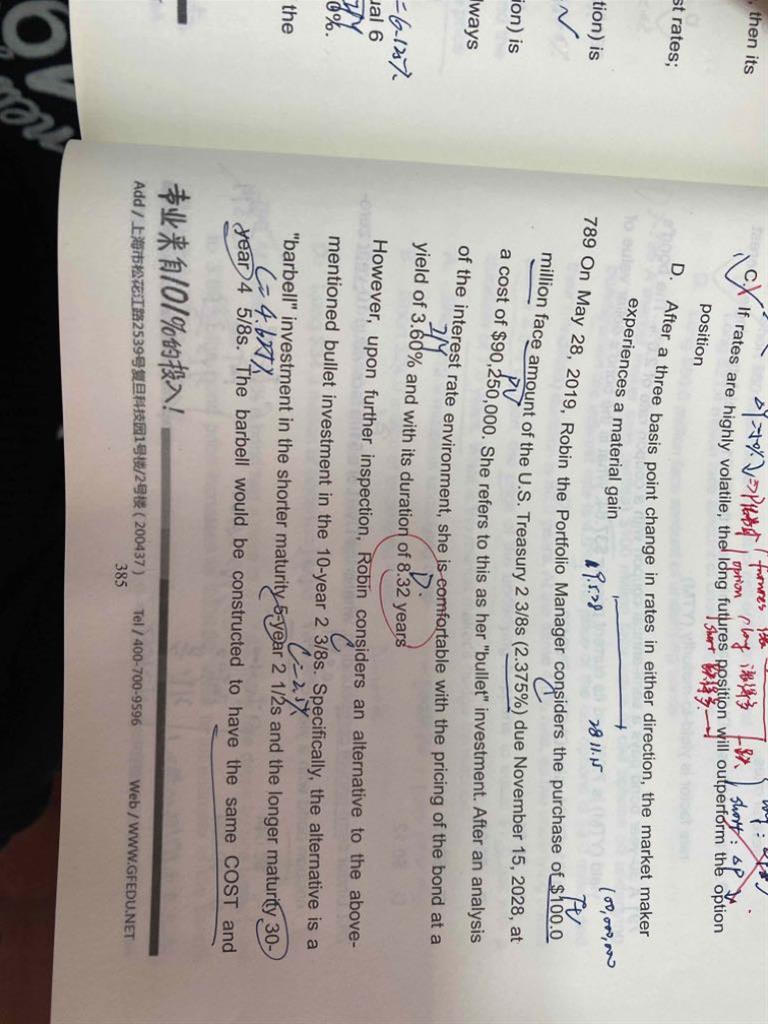 , then its
st rates;
tion) is
ion) is
lways
=6.125%
ual 6
the
C. If rates are highly volatile, the long futures position will outperform the option
position
D. After a three basis point change in rates in either direction, the market maker
experiences a material gain
19.5.28 28.11.15 100,000,000
789 On May 28, 2019, Robin the Portfolio Manager considers the purchase of $100.0
million face amount of the U.S. Treasury 2 3/8s (2.375%) due November 15, 2028, at
a cost of $90,250,000. She refers to this as her "bullet" investment. After an analysis
of the interest rate environment, she is comfortable with the pricing of the bond at a
yield of 3.60% and with its duration of 8.32 years
However, upon further inspection, Robin considers an alternative to the above-
mentioned bullet investment in the 10-year 2 3/8s. Specifically, the alternative is a
"barbell" investment in the shorter maturity 5-year 2 1/2s and the longer maturity 30-
year 4 5/8s. The barbell would be constructed to have the same COST and
专业来自101%的投入!
Add / 上海市松花江路2539号复旦科技园1号楼/2号楼（200437） Tel / 400-700-9596 Web / WWW.GFEDU.NET
385
new